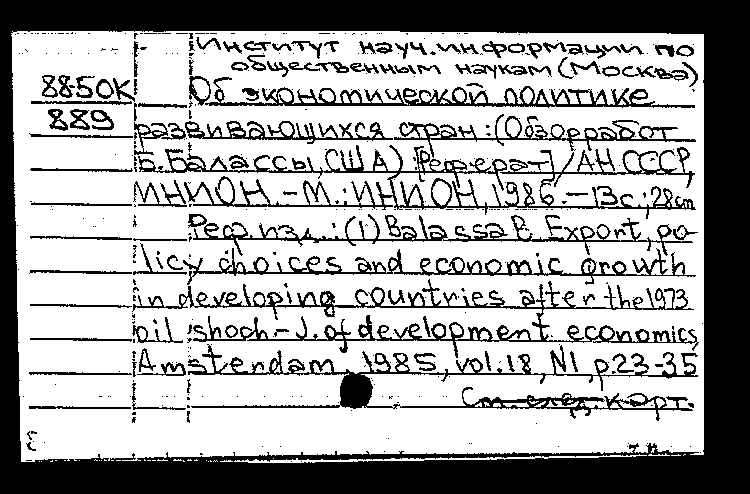 Институт науч.информации по
общественным наукам (Москва)
8850К Об экономической политике
889 развивающихся стран: (Обзор работ
Б.Балассы, США) [Реферат] / АН СССР,
ИНИОН. - М.: ИНИОН, 1986. - 13с.; 28cm
Реф. изд.: (1) Balassa B. Export, po-
licy choices and economic growth
in developing countries after the 1973
oil shoch. - J. of development economics,
Amsterdam, 1985, vol.18, N1, p.23-35
См. след. карт.